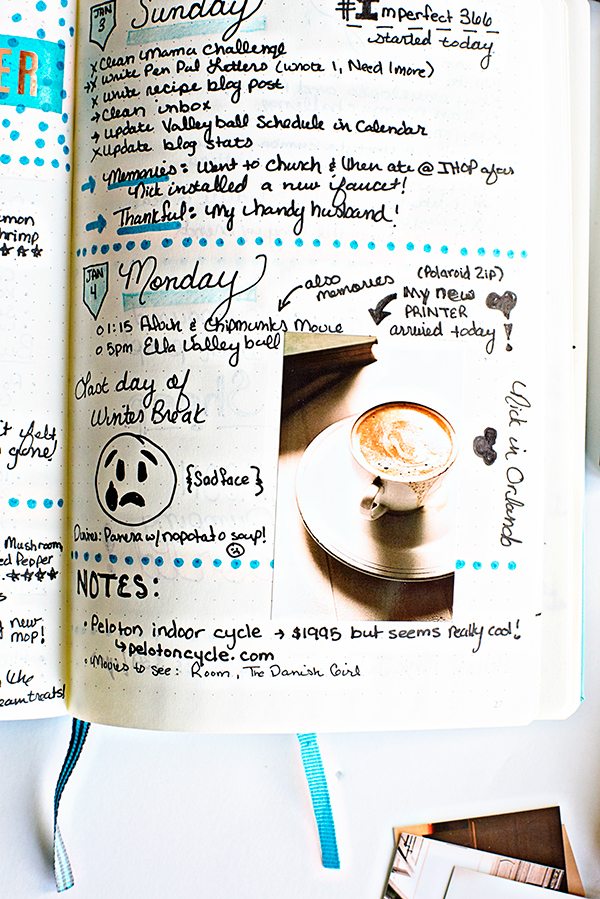 ER
JAN
3
Sunday
#Imperfect 366
started today
x Clean Mama Challenge
x Write Pen Pal Letters (wrote 1, Need 1 more)
x write recipe blog post
→ Clean inbox
→ update Valleyball Schedule in Calendar
x update blog stats
→ Memories: Went to church & then ate @ IHOP after
Nick installed a new faucet!
→ Thankful: My handy husband!
JAN
4
Monday
also
memories
(Polaroid Zip)
My new
PRINTER
arrived today!
01:15 Alvin & Chipmunks Movie
05pm Ella Valleyball
Last day of
Winter Break
{Sadface}
Nick in Orlando
Dinner: Panera w/ no potato soup!
NOTES:
• Peloton indoor cycle → $1995 but seems really cool!
↳ pelotoncycle.com
• Movies to see: Room, The Danish Girl
27
shrimp
felt
gone!
Mushroom,
Pepper
new
mop!
the
treats!